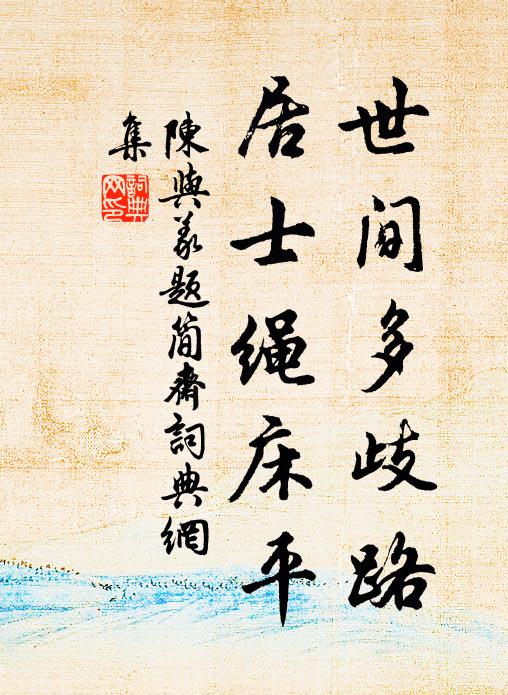 世间多歧路
居士绳床平
陳與義题简齋詞典網
集
詞典
网印